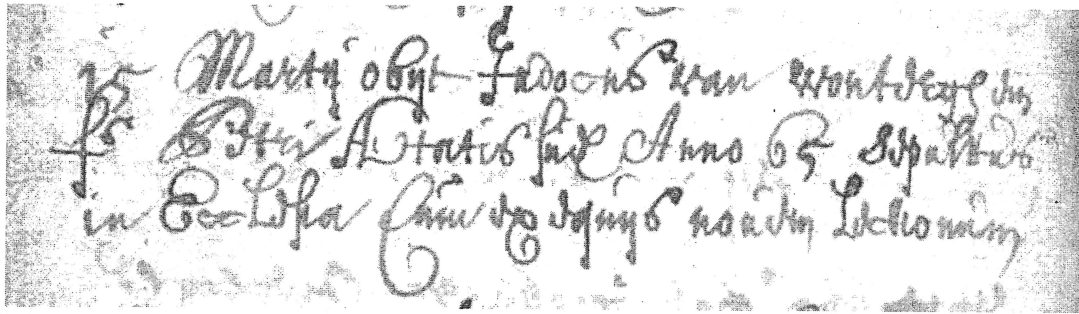 Martij obijt Judocus van wonterghem
fs Petri Ætatis suæ Anno 65 Sepultus
in Ecclesia Cum exequijs novem Lectionum